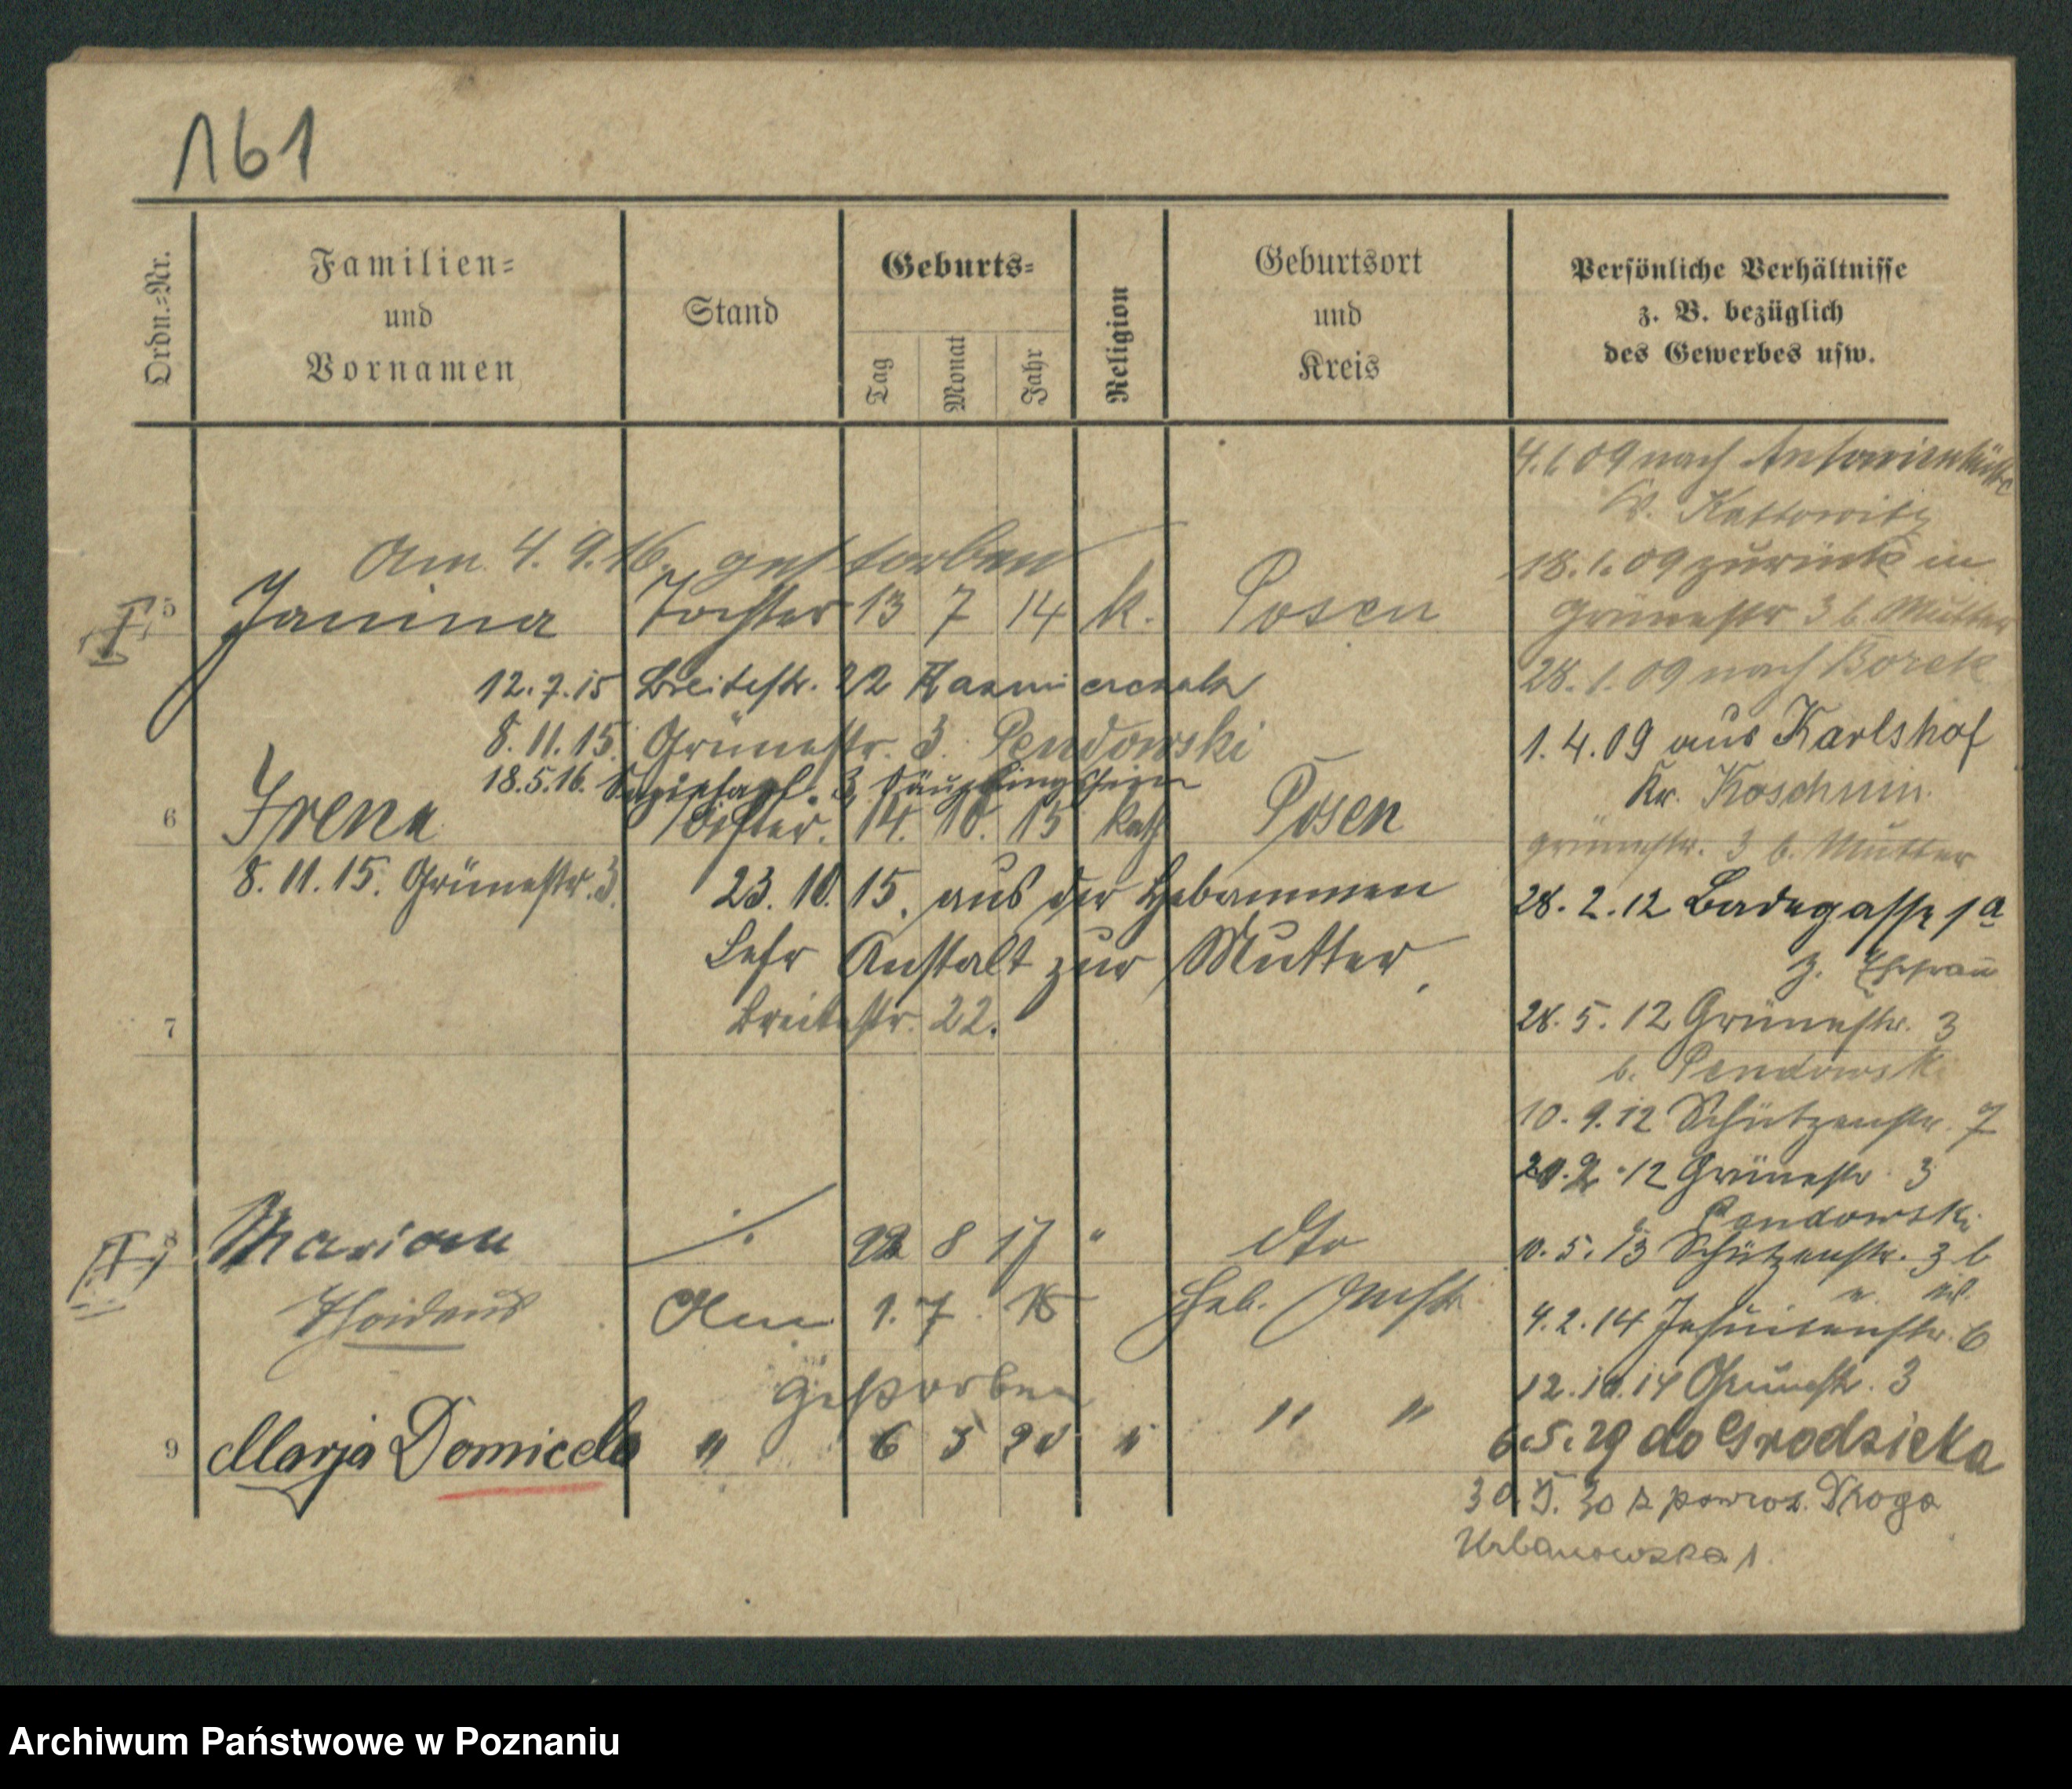 161
Ordn.=Nr.
Familien=
und
Vornamen
Stand
Geburts=
Tag
Monat
Jahr
Religion
Geburtsort
und
Kreis
Persönliche Verhältnisse
z. B. bezüglich
des Gewerbes usw.
Am 4. 9. 16. gestorben
5 Janina Tochter 13 7 14 k. Posen
12. 7. 15 Breitestr. 22 Kazmierczak
8. 11. 15. Grünestr. 3. Pendowski
18. 5. 16. 3, Säuglingsheim
6 Irena Tochter. 14. 10. 15 kath Posen
8. 11. 15. Grünestr. 3.
23. 10. 15. aus der Hebammen
Lehr Anstalt zur Mutter,
7 Breitestr. 22.
8 Marian ./. 22 8 17 " dto
Thadeus 1. 7. Heb. Anst.
gestorben
9 Marja Domicela " 6 5 20 " " "
4. 1. 09 nach Antonienhütte
Kr. Kattowitz
18. 1. 09 zurück in
Grünestr 3 b. Mutter
28. 1. 09 nach Borek
1. 4. 09 aus Karlshof
Kr. Koschmin.
Grünestr. 3 b. Mutter
28. 2. 12 Badegasse 1a
z. Ehefrau
28. 5. 12 Grünestr. 3
b. Pendowski
10. 9. 12 Schützenstr. 7
12 Grünestr. 3
Pendowski
10. 5. 13 Schützenstr. 3 b
4. 2. 14 Jesuitenstr. 6
12. 10. 14 Grünestr. 3
6. 5. 29 do Grodziska
30. 5. 30 z powrot. Droga
Urbanowska 1.
Archiwum Państwowe w Poznaniu